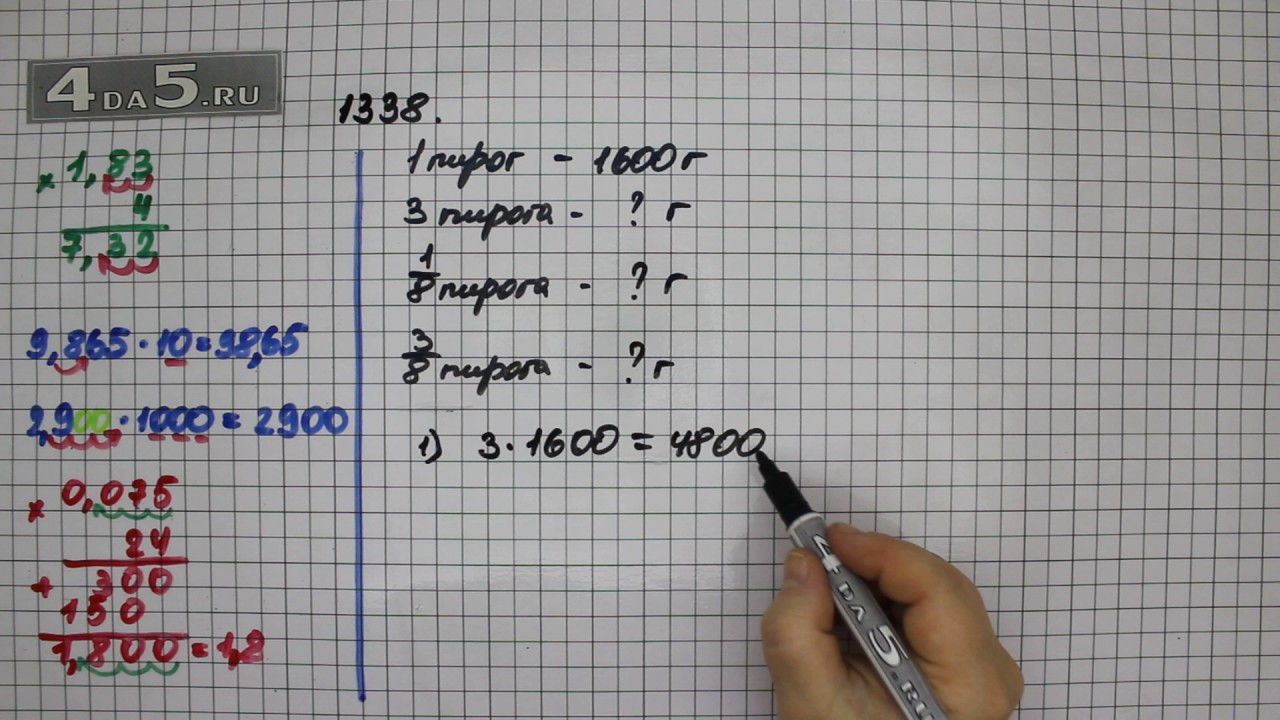 4DA5.RU
1338.
× 1,83
4
7,32
9,865 · 10 = 98,65
2,900 · 1000 = 2900
× 0,075
24
+ 300
150
1,800 = 1,8
1 пирог - 1600 г
3 пирога - ? г
1/8 пирога - ? г
3/8 пирога - ? г
1) 3 · 1600 = 4800
4DA5.RU